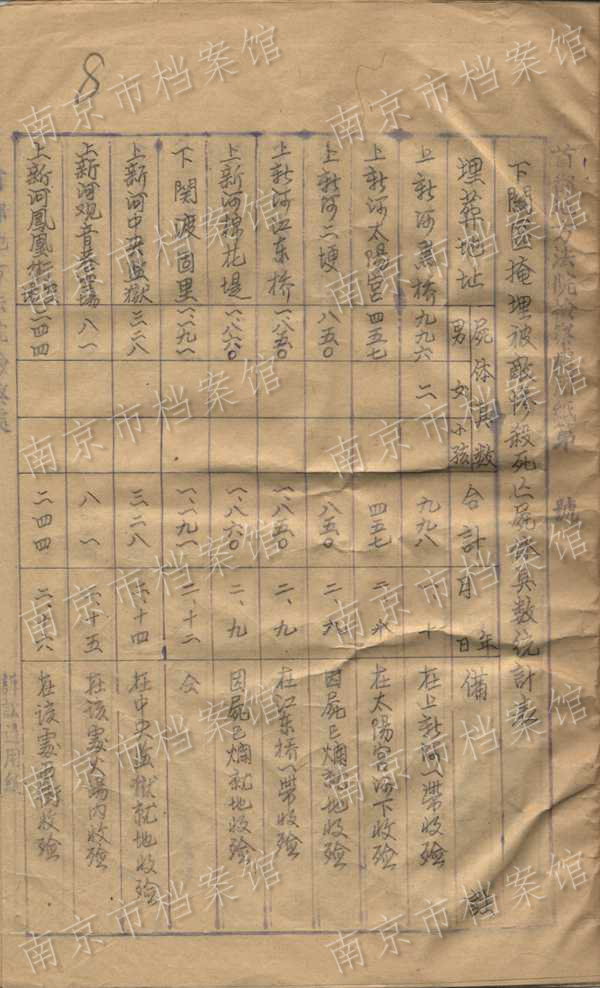 8
下關區掩埋被敵慘殺死亡屍体具数統計表
埋葬地址 屍体具数 男 女 小孩 合計 年月日 備註
上新河黑桥 九九六 二 九九八 一、十 在上新河一带收殓
上新河太陽宮 四五七 四五七 二、九 在太陽宮河下收殓
上新河二埂 八五〇 八五〇 二、九 因屍已爛就地收殓
上新河江东桥 一、八五〇 一、八五〇 二、九 在江东桥一带收殓
上新河棉花堤 一、八六〇 一、八六〇 二、九 因屍已爛就地收殓
下関渡固里 一、一九一 一、一九一 二、十二 仝
上新河中央监獄 三二八 三二八 二、十四 在中央监獄就地收殓
上新河观音菴空場 八一 八一 二、十五 在该處火場内收殓
上新河鳳凰街空場 二四四 二四四 二、十六 在该處西街收殓
南京市档案馆